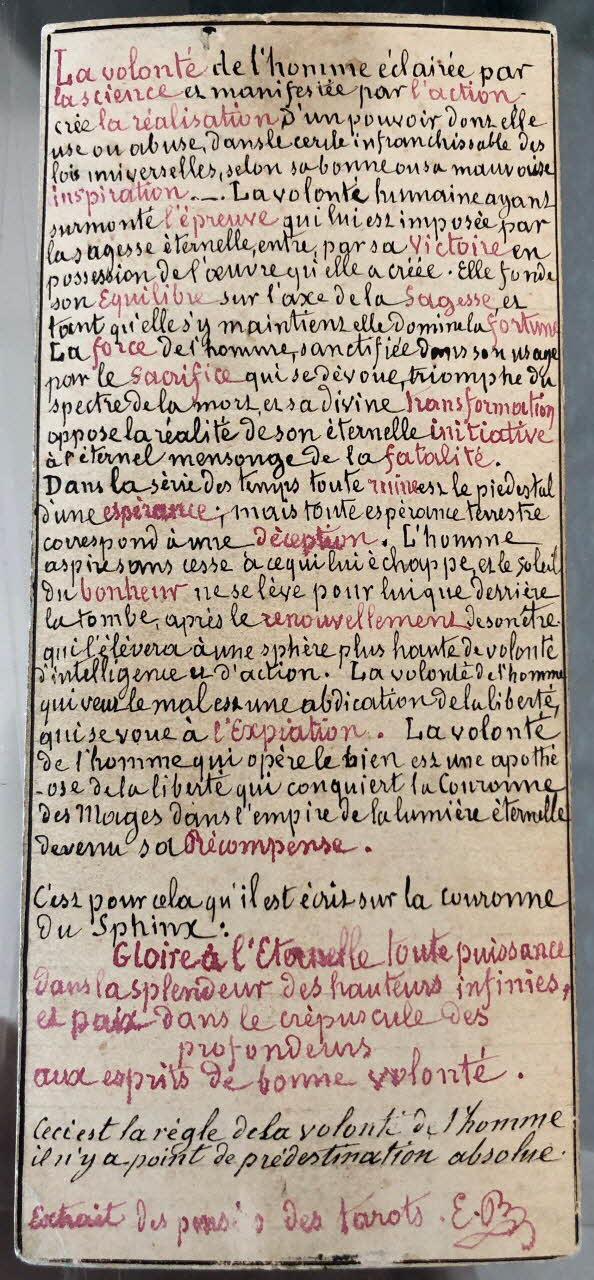 La volonté de l'homme éclairée par
la science et manifestée par l'action
crée la réalisation d'un pouvoir dont elle
use ou abuse, dans le cercle infranchissable des
lois universelles, selon sa bonne ou sa mauvaise
inspiration. — . La volonté humaine ayant
surmonté l'épreuve qui lui est imposée par
la sagesse éternelle, entre, par sa Victoire en
possession de l'œuvre qu'elle a créée. Elle fonde
son Equilibre sur l'axe de la Sagesse, et
tant qu'elle s'y maintient elle domine la fortune
La force de l'homme, sanctifiée dans son usage
par le Sacrifice qui se dévoue, triomphe du
spectre de la mort, et sa divine transformation
oppose la réalité de son éternelle initiative
à l'éternel mensonge de la fatalité.
Dans la série des temps toute ruine est le piedestal
d'une espérance ; mais toute espérance terrestre
correspond à une déception. L'homme
aspire sans cesse à ce qui lui échappe, et le soleil
du bonheur ne se lève pour lui que derrière
la tombe, après le renouvellement de son être
qui l'élèvera à une sphère plus haute de volonté
d'intelligence et d'action. La volonté de l'homme
qui veut le mal est une abdication de la liberté,
qui se voue à l'Expiation. La volonté
de l'homme qui opère le bien est une apothé
-ose de la liberté qui conquiert la Couronne
des Mages dans l'empire de la lumière éternelle
devenu sa Récompense.
C'est pour cela qu'il est écrit sur la couronne
du Sphinx :
Gloire à l'Eternelle toute puissance
dans la splendeur des hauteurs infinies,
et paix dans le crépuscule des
profondeurs
aux esprits de bonne volonté.
Ceci est la règle de la volonté de l'homme
il n'y a point de prédestination absolue.
Extrait des pensées des tarots. E.